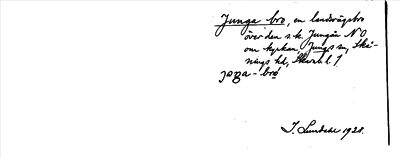 Junga bro, en landsvägsbro
över den s.k. Jungån NO
om kyrkan, Jungs sn, Skå-
nings hd, Skarab l.
bro
I. Lundahl 1928.